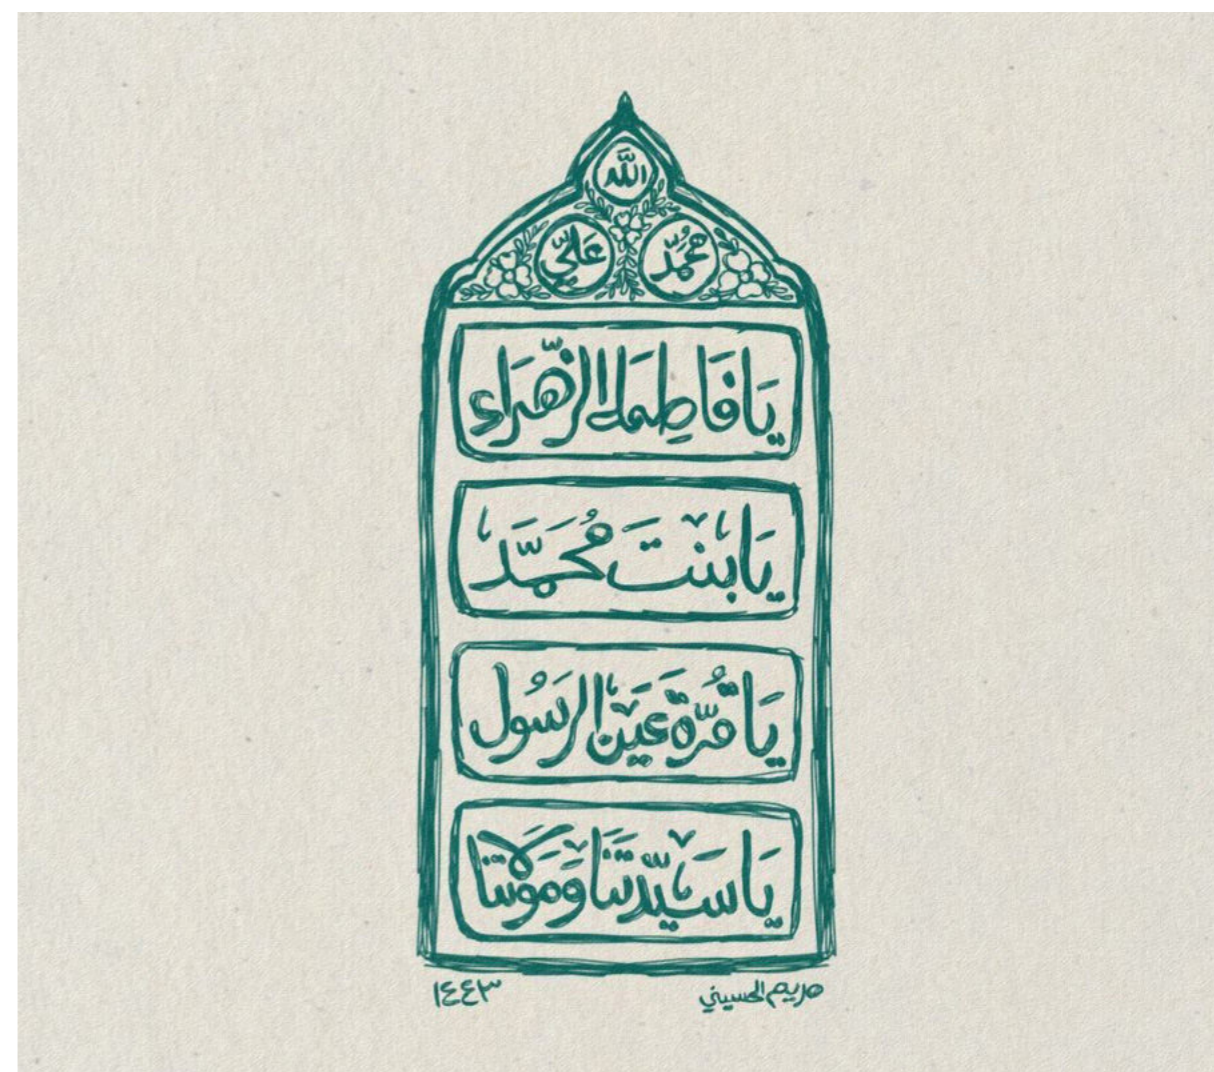 اللّٰه
مُحَمَّد
عَلِيّ
يَا فَاطِمَة الزَّهْرَاء
يَا بِنْتَ مُحَمَّد
يَا قُرَّةَ عَيْنِ الرَسُول
يَا سَيِّدَتَنَا وَمَوْلَاتَنَا
مريم الحسيني
١٤٤٣